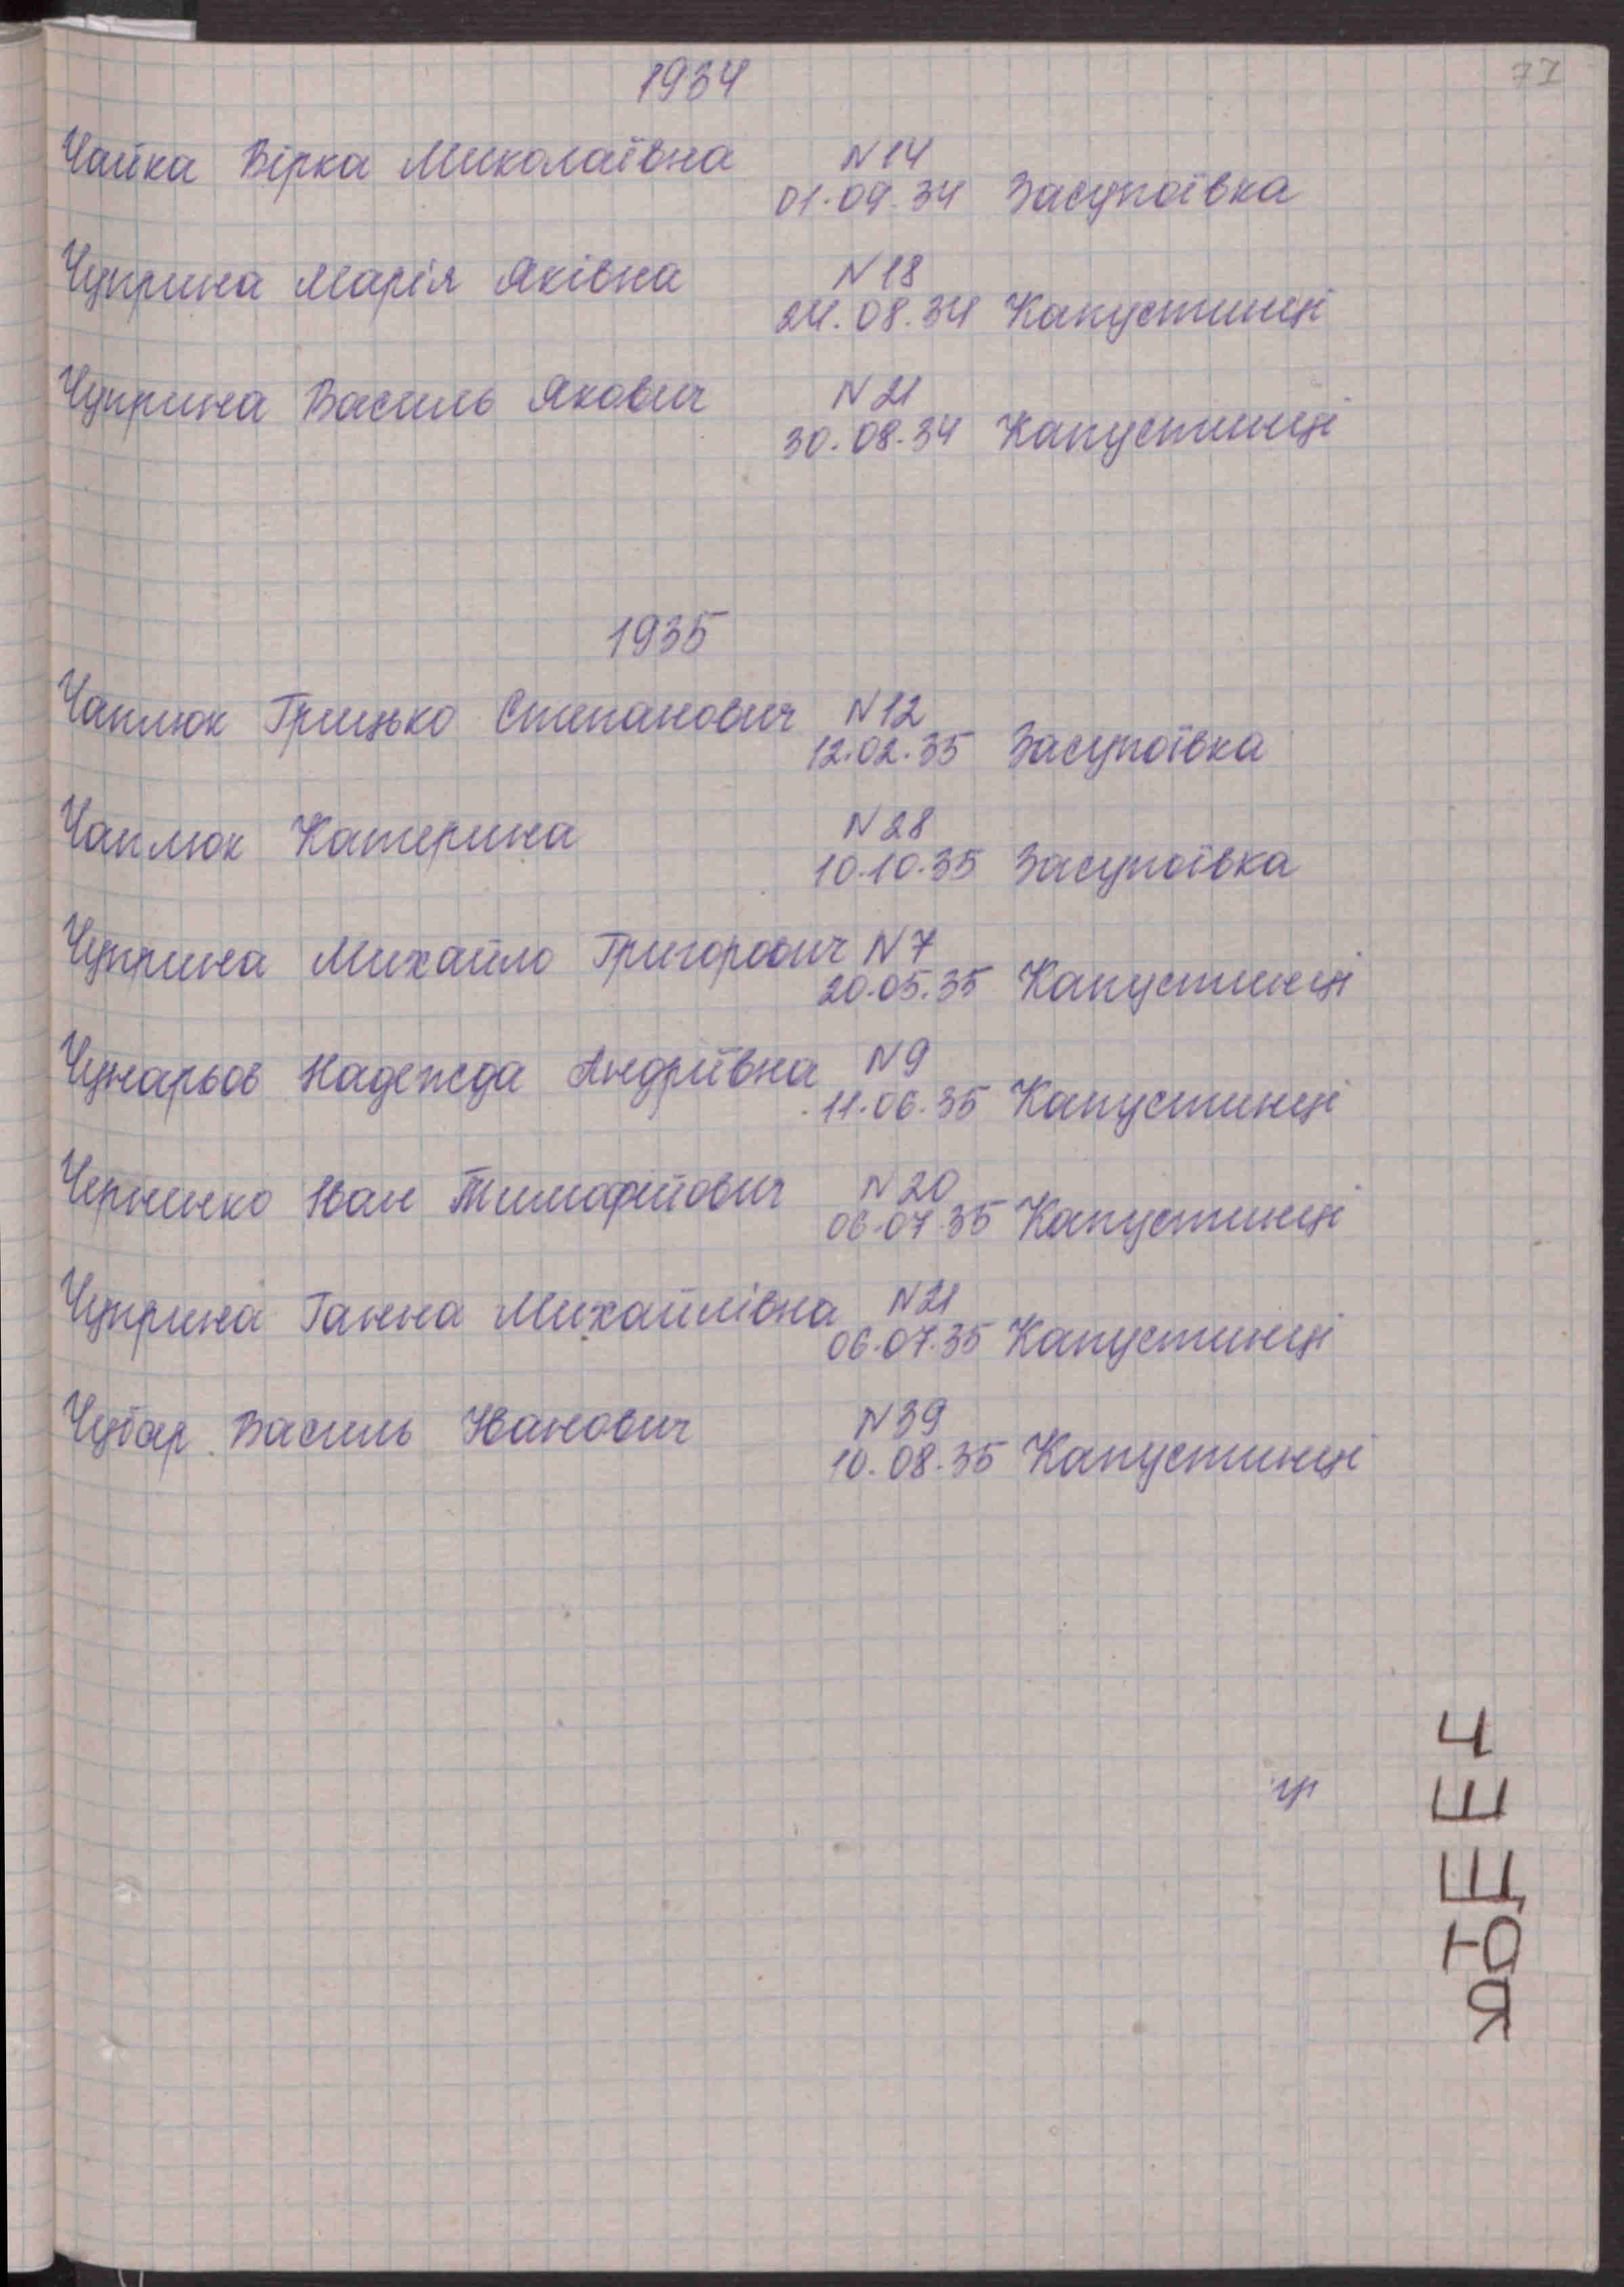 77
1934
Чайка Вірка Миколаївна N14
01.09.34 Засупоївка
Чуприна Марія Яківна N18
24.08.34 Капустинці
Чуприна Василь Якович N21
30.08.34 Капустинці
1935
Чаплюк Грицько Степанович N12
12.02.35 Засупоївка
Чаплюк Катерина N28
10.10.35 Засупоївка
Чуприна Михайло Григорович N7
20.05.35 Капустинці
Чунарьов Надежда Андріївна N9
11.06.35 Капустинці
Чернинко Іван Тимофійович N20
06.07.35 Капустинці
Чуприна Ганна Михайлівна N21
06.07.35 Капустинці
Чубар Василь Іванович N39
10.08.35 Капустинці
Ч
Ш
Щ
Ю
Я